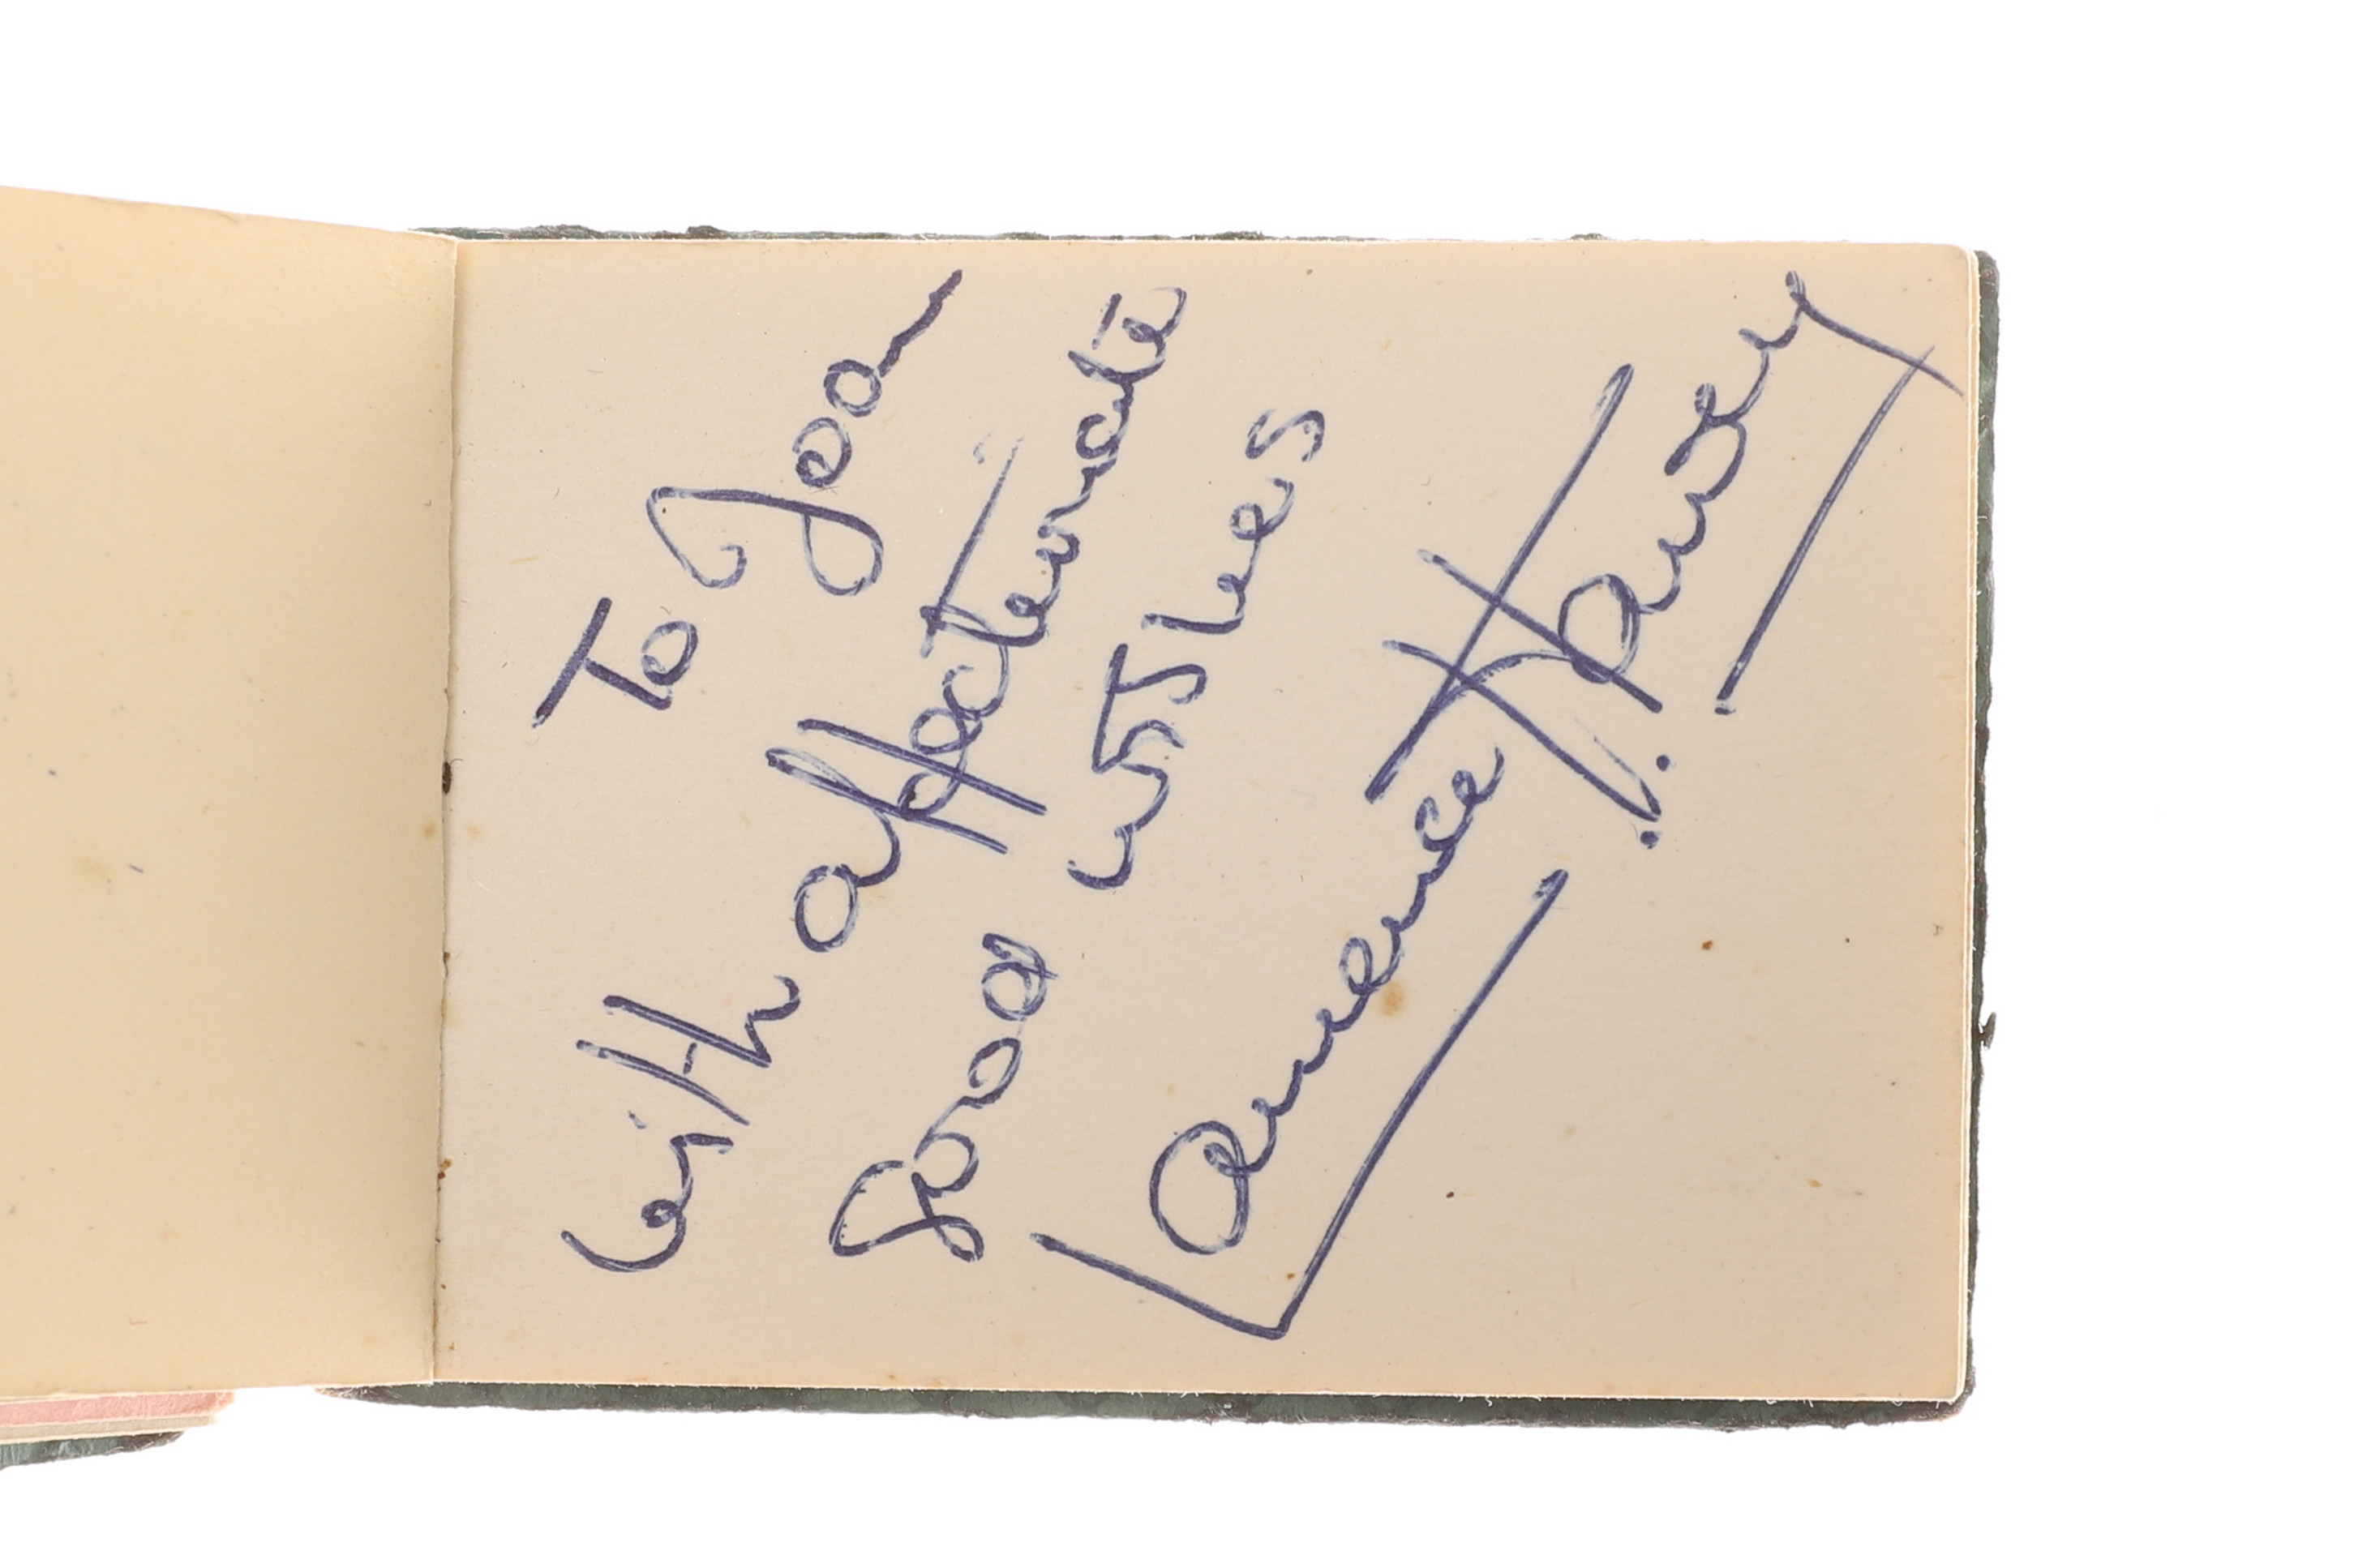 To Joan
With affectionate
Good wishes
Laurence H.